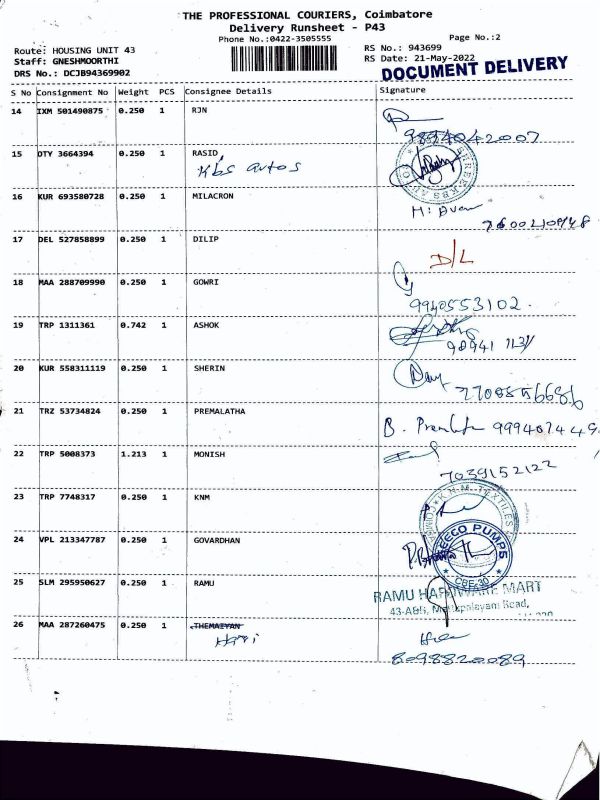 THE PROFESSIONAL COURIERS, Coimbatore
Delivery Runsheet - P43
Phone No.:0422-3505555
Page No.:2
Route: HOUSING UNIT 43
RS No.: 943699
Staff: GNESHMOORTHI
RS Date: 21-May-2022
DRS No.: DCJB94369902
DOCUMENT DELIVERY
S No Consignment No Weight PCS Consignee Details Signature
14 IXM 501490875 0.250 1 RJN
9894042007
15 OTY 3664394 0.250 1 RASID
Kbs autos
16 KUR 693580728 0.250 1 MILACRON
17 DEL 527858899 0.250 1 DILIP
D/L
18 MAA 288709990 0.250 1 GOWRI
9940553102
19 TRP 1311361 0.742 1 ASHOK
20 KUR 558311119 0.250 1 SHERIN
21 TRZ 53734824 0.250 1 PREMALATHA
B.
22 TRP 5008373 1.213 1 MONISH
7039152122
23 TRP 7748317 0.250 1 KNM
K.N.M. TEXTILES
24 VPL 213347787 0.250 1 GOVARDHAN
PUMPS
CBE-30
25 SLM 295950627 0.250 1 RAMU
RAMU HARDWARE MART
43-A&B, Mettupalayam Road,
26 MAA 287260475 0.250 1 THEMAIYAN
8098820089